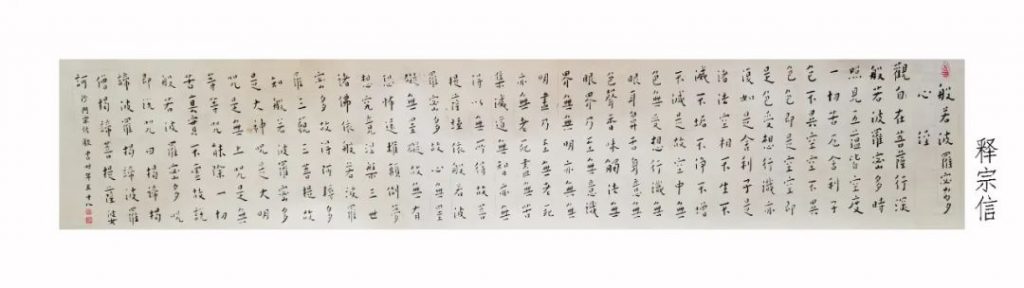 般若波羅蜜多
心經
觀自在菩薩行深
般若波羅蜜多時
照見五蘊皆空度
一切苦厄舍利子
色不異空空不異
色色即是空空即
是色受想行識亦
復如是舍利子是
諸法空相不生不
滅不垢不淨不增
不減是故空中無
色無受想行識無
眼耳鼻舌身意無
色聲香味觸法無
眼界乃至無意識
界無無明亦無無
明盡乃至無老死
亦無老死盡無苦
集滅道無智亦無
得以無所得故菩
提薩埵依般若波
羅蜜多故心無罣
礙無罣礙故無有
恐怖遠離顛倒夢
想究竟涅槃三世
諸佛依般若波羅
蜜多故得阿耨多
羅三藐三菩提故
知般若波羅蜜多
是大神咒是大明
咒是無上咒是無
等等咒能除一切
苦真實不虛故說
般若波羅蜜多咒
即說咒曰揭諦揭
諦波羅揭諦波羅
僧揭諦菩提薩婆
訶 沙門宗信敬書 年五十八
释宗信